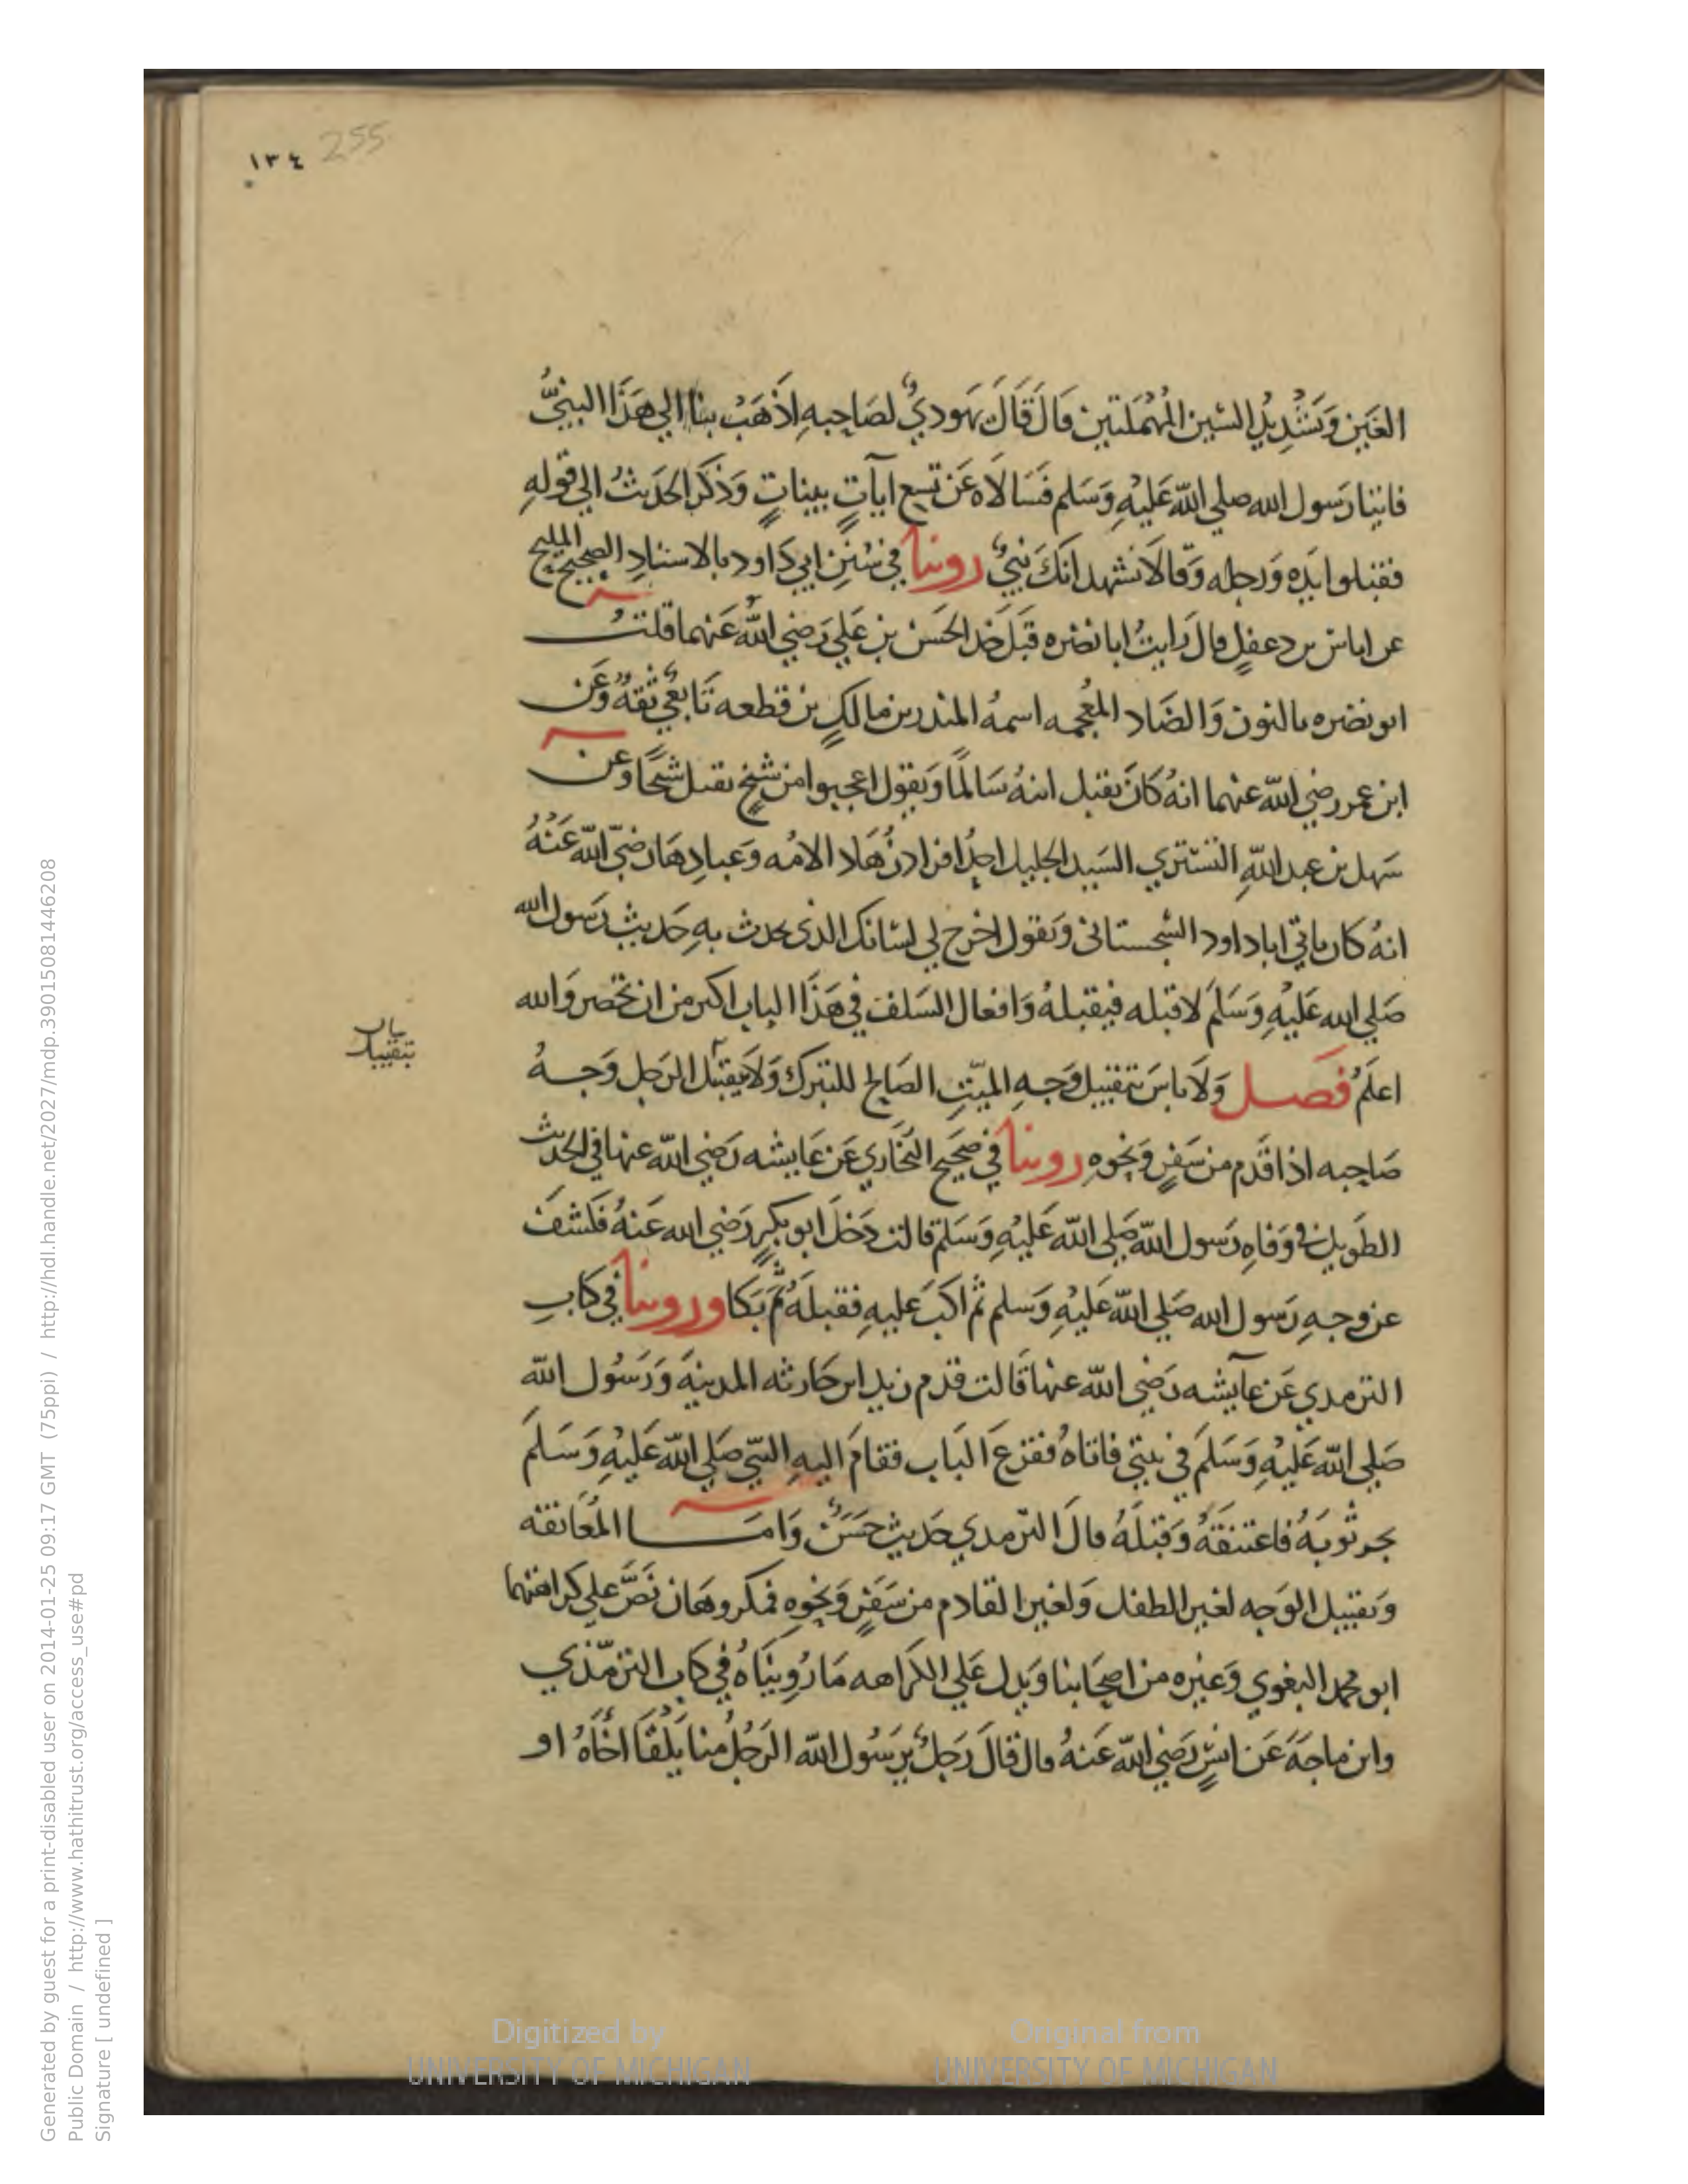 ١٣٤ 255
العَين وَتَشْدِيْدِ السّين المُهْمَلتين قال قَالَ يَهوديٌ لصَاحِبهِ اذْهَبْ بنا الي هَذَا النبيُّ
فاتينا رَسول الله صلي اللّه عَليْهِ وَسَلم فسَالاه عَن تسع ايآتٍ بيناتٍ وَذكَر الحَديثُ الي قولهِ
فقبلوا يدِه وَرجله وَقالا نشهد انكَ نبيٌ روينا في سُنَنِ ابي دَاود بالاسنادِ الصحيح المليح
عن اياس بن دعفلٍ قال رَايتُ ابا نضره قبَّل خد الحَسَن بن عَلي رَضي اللّه عَنهما قلتُ
ابو نضره بالنون وَالضاد المعجمه اسمهُ المنذر بن مالكٍ بن قطعه تَابعيٌ ثقهٌ وَعَن
ابن عمر رضي اللّه عنهما انهُ كانَ يقبل ابنهُ سَالمًا وَيقول اعجبوا من شيخٍ يقبل شيخًا وعن
سَهل بن عبد اللّهِ التستري السَيد الجليل احدُ افراد زُهاد الامُه وَعبادِها رَضيّ اللّه عَنْهُ
انهُ كان ياتي ابا داود السّجستاني وَيقول اخرج لي لسَانك الذي يحدث بهِ حَديث رَسول الله
صَلي الله عَليْهِ وَسَلمَ لاقبله فيقبلهُ وَافعال السَلف في هَذا الباب اكبر من ان تحصر وَالله
اعلَمُ فصل وَلاَ باسَ بتقبيل وَجهِ الميّتِ الصَالح للتبرك وَلاَ يقبّل الرَجل وَجهُ
بيان
بتقبيل
صَاحِبه اذا قَدم من سَفرٍ وَنحوِهِ روينا في صَحيح البُخاري عَن عَايشه رَضي اللّه عنها في الحديث
الطَويل في وَفاهِ رَسول اللّه صَلي اللّه عَليْهِ وَسَلم قالت دَخلَ ابو بكرٍ رَضي الله عَنهُ فكشفَ
عن وَجهِ رَسول الله صَلي اللّه عَليْهِ وَسلم ثم اكبَ عَليهِ فقبلهُ ثمَّ بَكا وروينا في كتابِ
الترمدي عَن عآيشه رَضي اللّه عنها قَالت قدم زيد ابن حَارثه المدينهَ وَرَسُول اللّه
صَلي اللّه عَليْهِ وَسَلَمَ في بيتي فاتاهُ فقرعَ البَاب فقامَ اليهِ النبّي صَلي اللّه عَليْهِ وَسَلمَ
يجر ثوبَهُ فاعتنقهُ وَقبّلهُ قالَ الترمدي حَديث حَسَنٌ وَامَا المُعَانقه
وَتقبيل الوَجه لغير الطفل وَلغير القادم من سَفرٍ وَنحْوِهِ فمكروهَان نَصَّ علي كراهتهما
ابو محمد البغوي وَغيره من اصحَابنا وَيدل عَلي الكراهه مَا رُوِينَاهُ في كتاب الترمّذي
وابن ماجَهَ عَن انسٍ رَضي اللّه عَنهُ قال قالَ رَجلٌ يرَسُول اللّه الرَجُل منا يَلْقَا اخَاهُ او
Generated by guest for a print-disabled user on 2014-01-25 09:17 GMT (75ppi) / http://hdl.handle.net/2027/mdp.39015081446208
Public Domain / http://www.hathitrust.org/access_use#pd
Signature [ undefined ]
Digitized by
UNIVERSITY OF MICHIGAN
Original from
UNIVERSITY OF MICHIGAN